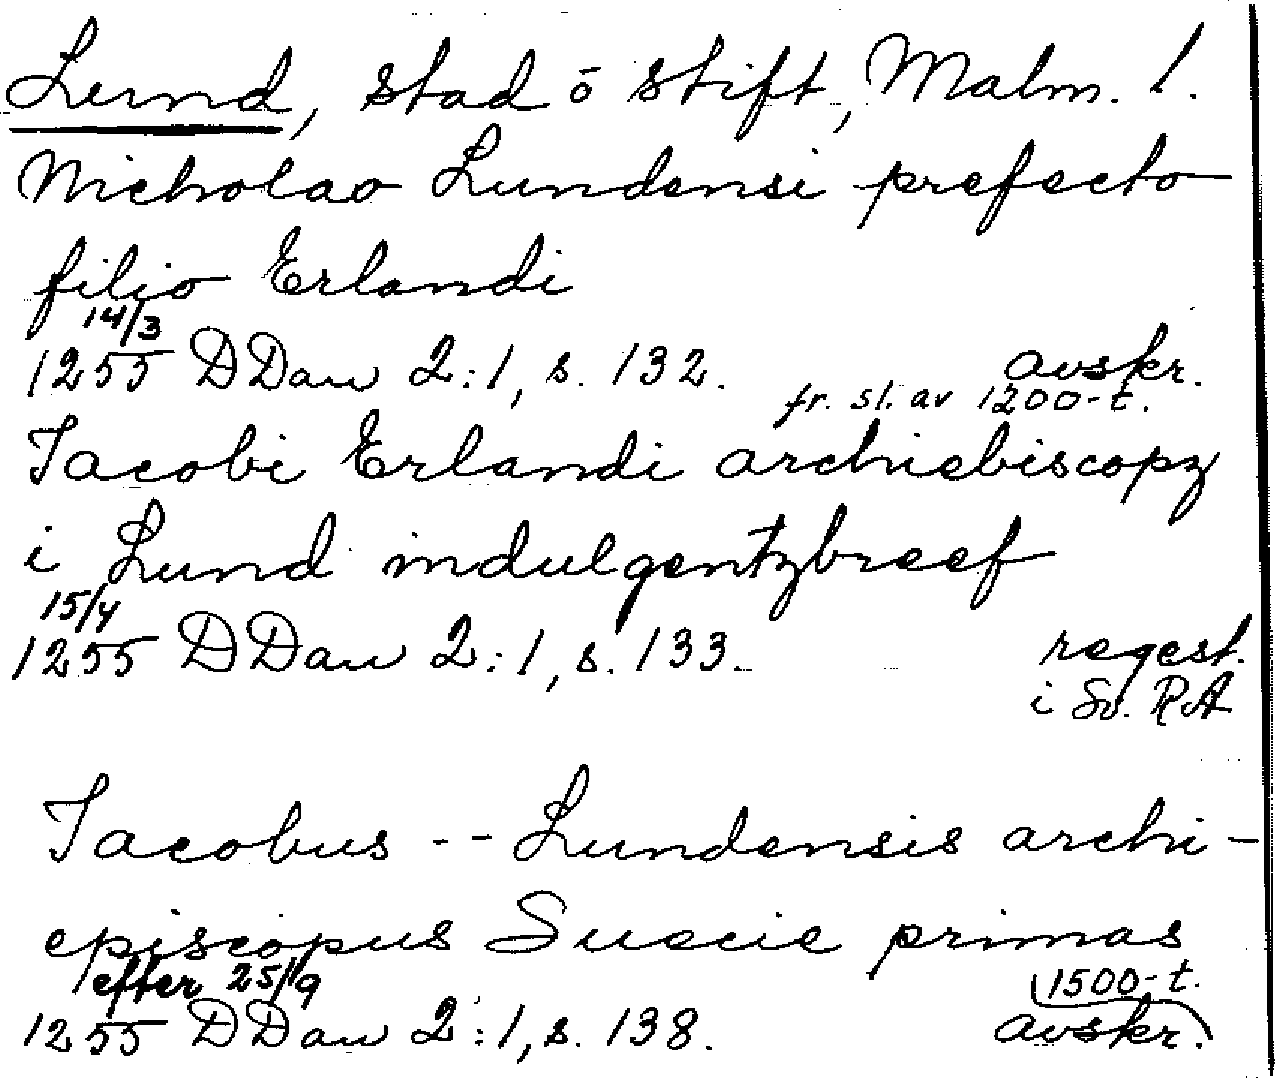 Lund, stad o stift, Malm. l.
Nicholao Lundensi prefecto
filio Erlandi
14/3
1255 DDan 2:1, s. 132. avskr.
fr. sl. av 1200-t.
Iacobi Erlandi archiebiscopz
i Lund indulgentzbreef
15/4
1255 DDan 2:1, s. 133. regest.
i Sv. RA
Iacobus -- Lundensis archi-
episcopus Suecie primas
efter 25/9 1500-t.
1255 DDan 2:1, s. 138. avskr.